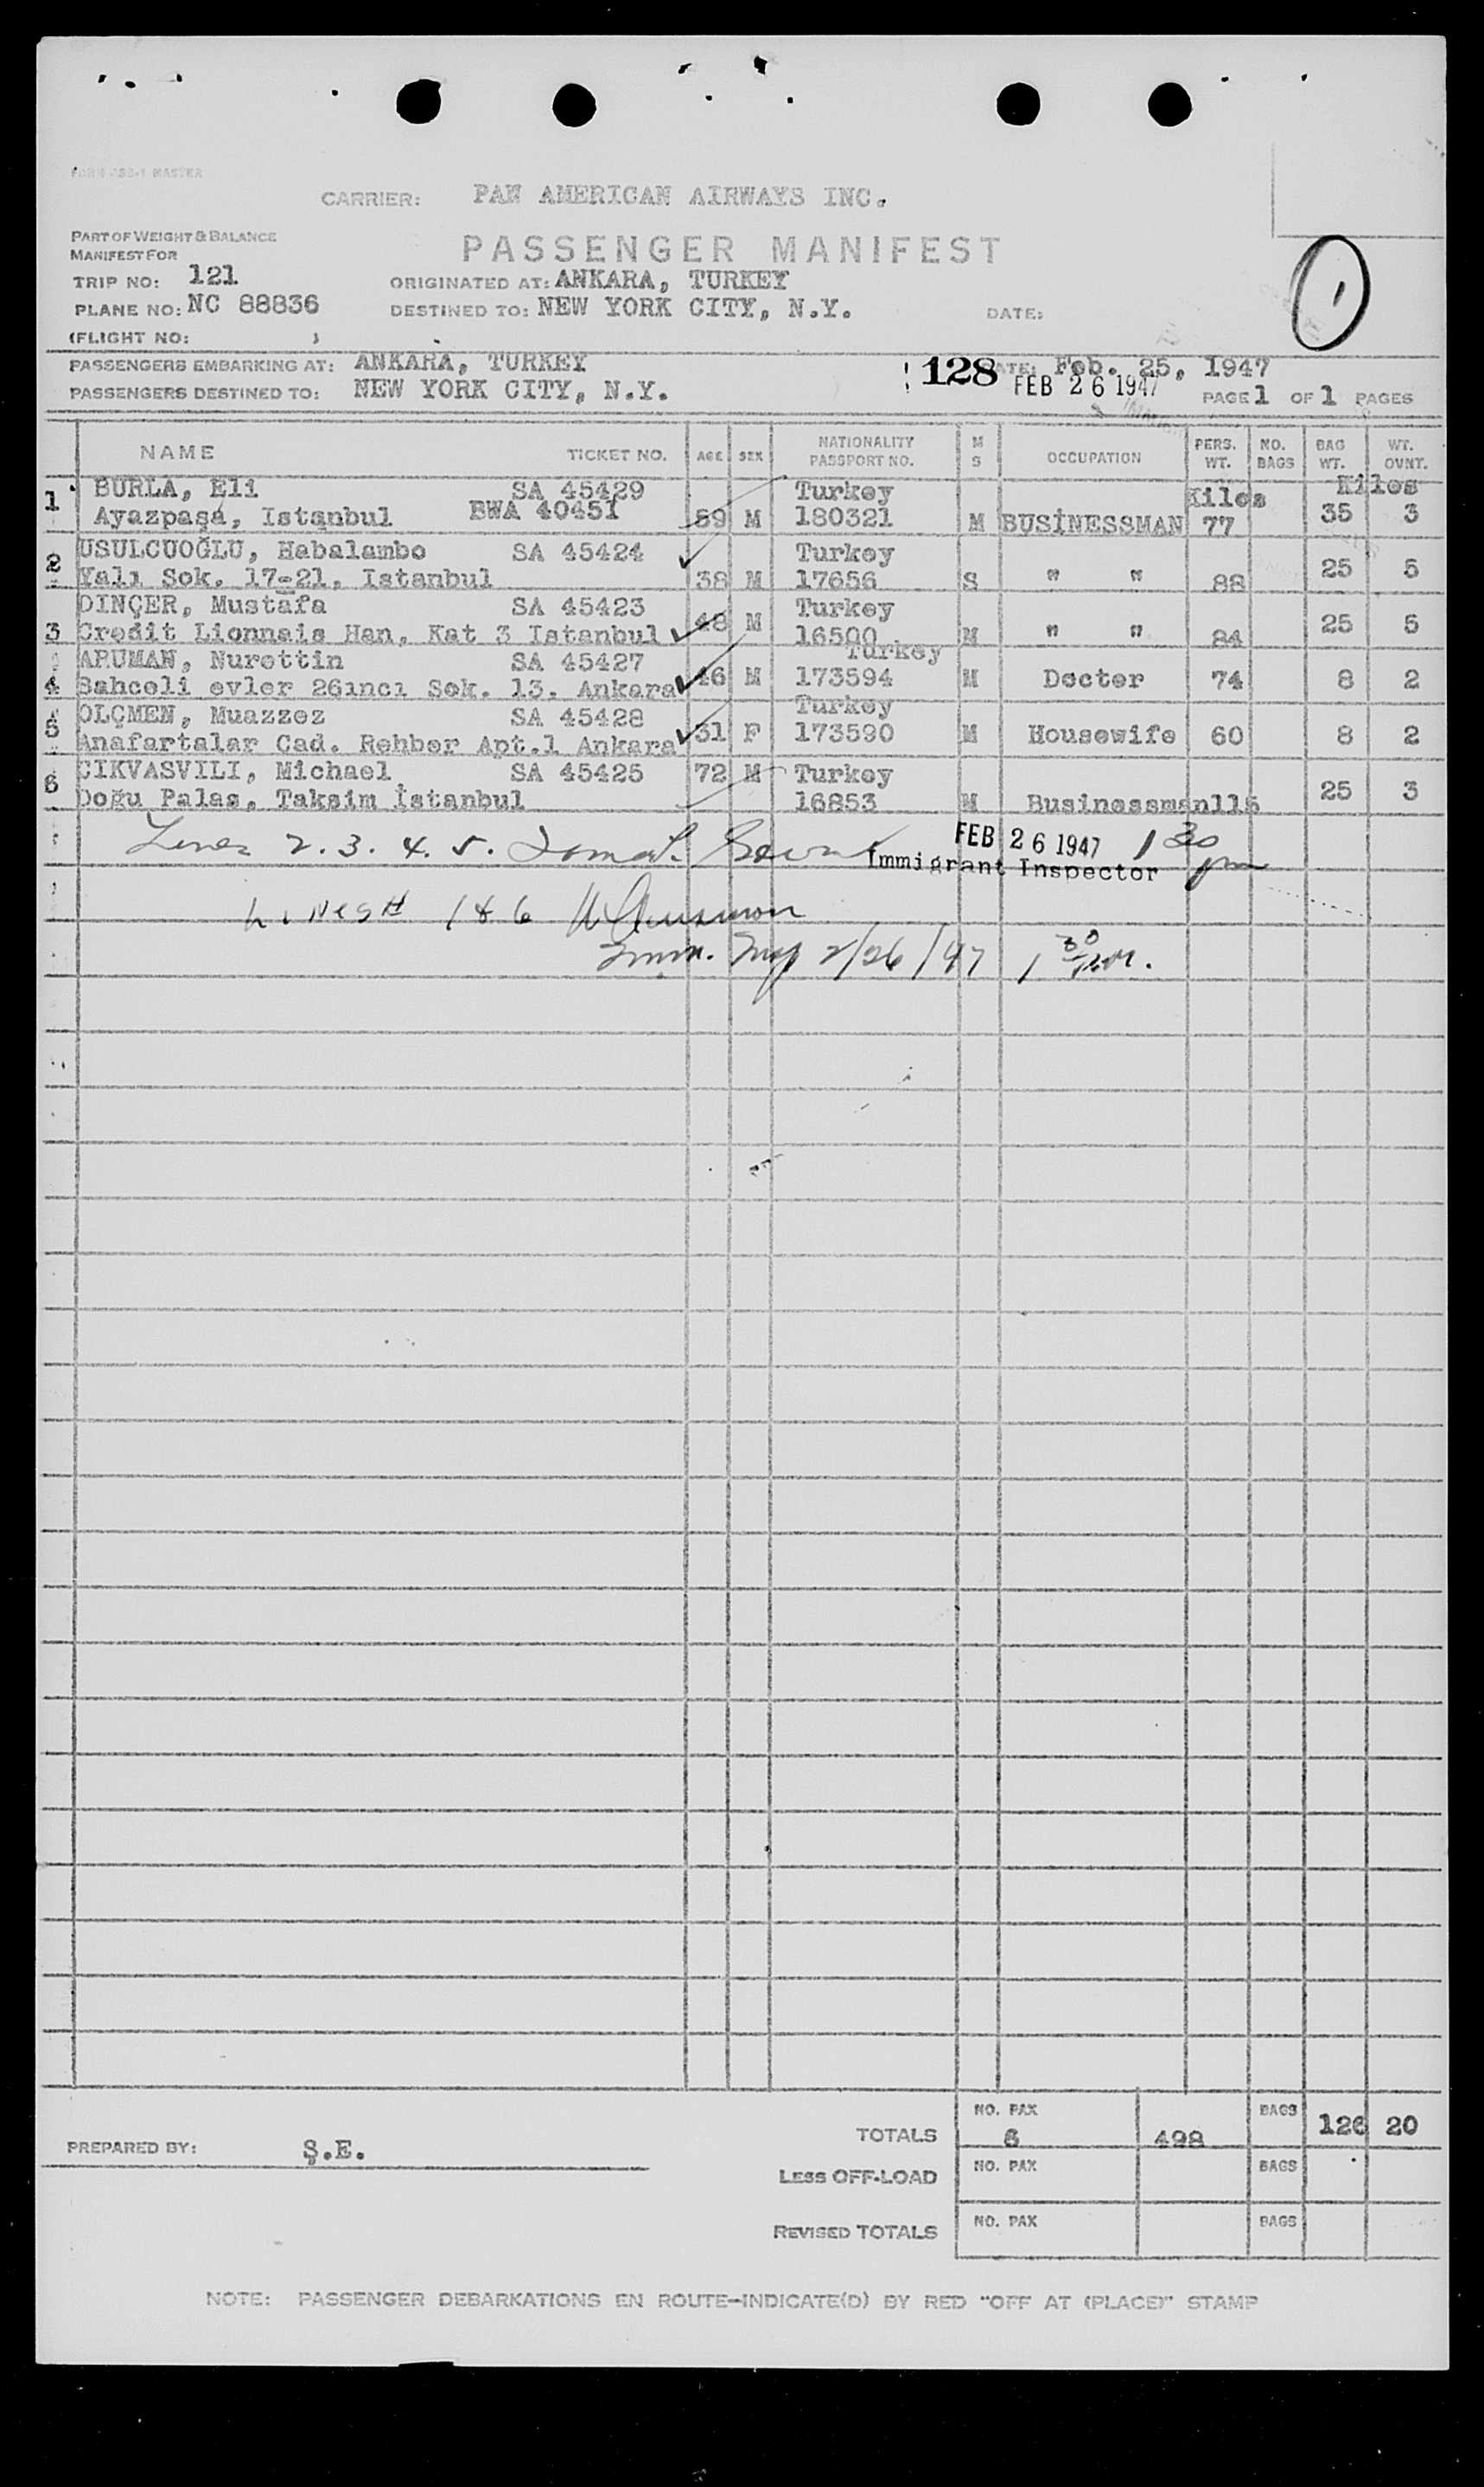 FORM 133-1 MASTER
CARRIER: PAN AMERICAN AIRWAYS INC.
PART OF WEIGHT & BALANCE
MANIFEST FOR
PASSENGER MANIFEST
TRIP NO: 121 ORIGINATED AT: ANKARA, TURKEY
PLANE NO: NC 88836 DESTINED TO: NEW YORK CITY, N.Y. DATE:
(FLIGHT NO: )
PASSENGERS EMBARKING AT: ANKARA, TURKEY 128 DATE: Feb. 25, 1947
PASSENGERS DESTINED TO: NEW YORK CITY, N.Y. FEB 26 1947 PAGE 1 OF 1 PAGES
NAME TICKET NO. AGE SEX NATIONALITY PASSPORT NO. M S OCCUPATION PERS. WT. NO. BAGS BAG WT. WT. OVNT.
Kilos Kilos
1 BURLA, Eli SA 45429 Turkey
Ayazpaşa, Istanbul BWA 40451 59 M 180321 M BUSİNESSMAN 77 35 3
2 USULCUOĞLU, Habalambo SA 45424 Turkey
Yalı Sok. 17-21, Istanbul 38 M 17656 S " " 88 25 5
DINÇER, Mustafa SA 45423 48 M Turkey
3 Credit Lionnais Han, Kat 3 Istanbul 16500 M " " 84 25 5
ARUMAN, Nurettin SA 45427 Turkey
4 Bahceli evler 26ıncı Sok. 13. Ankara 46 M 173594 M Docter 74 8 2
5 OLÇMEN, Muazzez SA 45428 Turkey
Anafartalar Cad. Rehber Apt.1 Ankara 31 F 173590 M Housewife 60 8 2
6 CIKVASVILI, Michael SA 45425 72 M Turkey
Doğu Palas, Taksim İstanbul 16853 M Businessman 115 25 3
Lines 2. 3. 4. 5. FEB 26 1947 1 30 pm
Immigrant Inspector
Lines # 1 & 6
Imm. Insp 2/26/47 1 30 P.M.
TOTALS NO. PAX 6 498 BAGS 126 20
PREPARED BY: Ş.E.
LESS OFF-LOAD NO. PAX BAGS
REVISED TOTALS NO. PAX BAGS
NOTE: PASSENGER DEBARKATIONS EN ROUTE—INDICATE(D) BY RED "OFF AT (PLACE)" STAMP